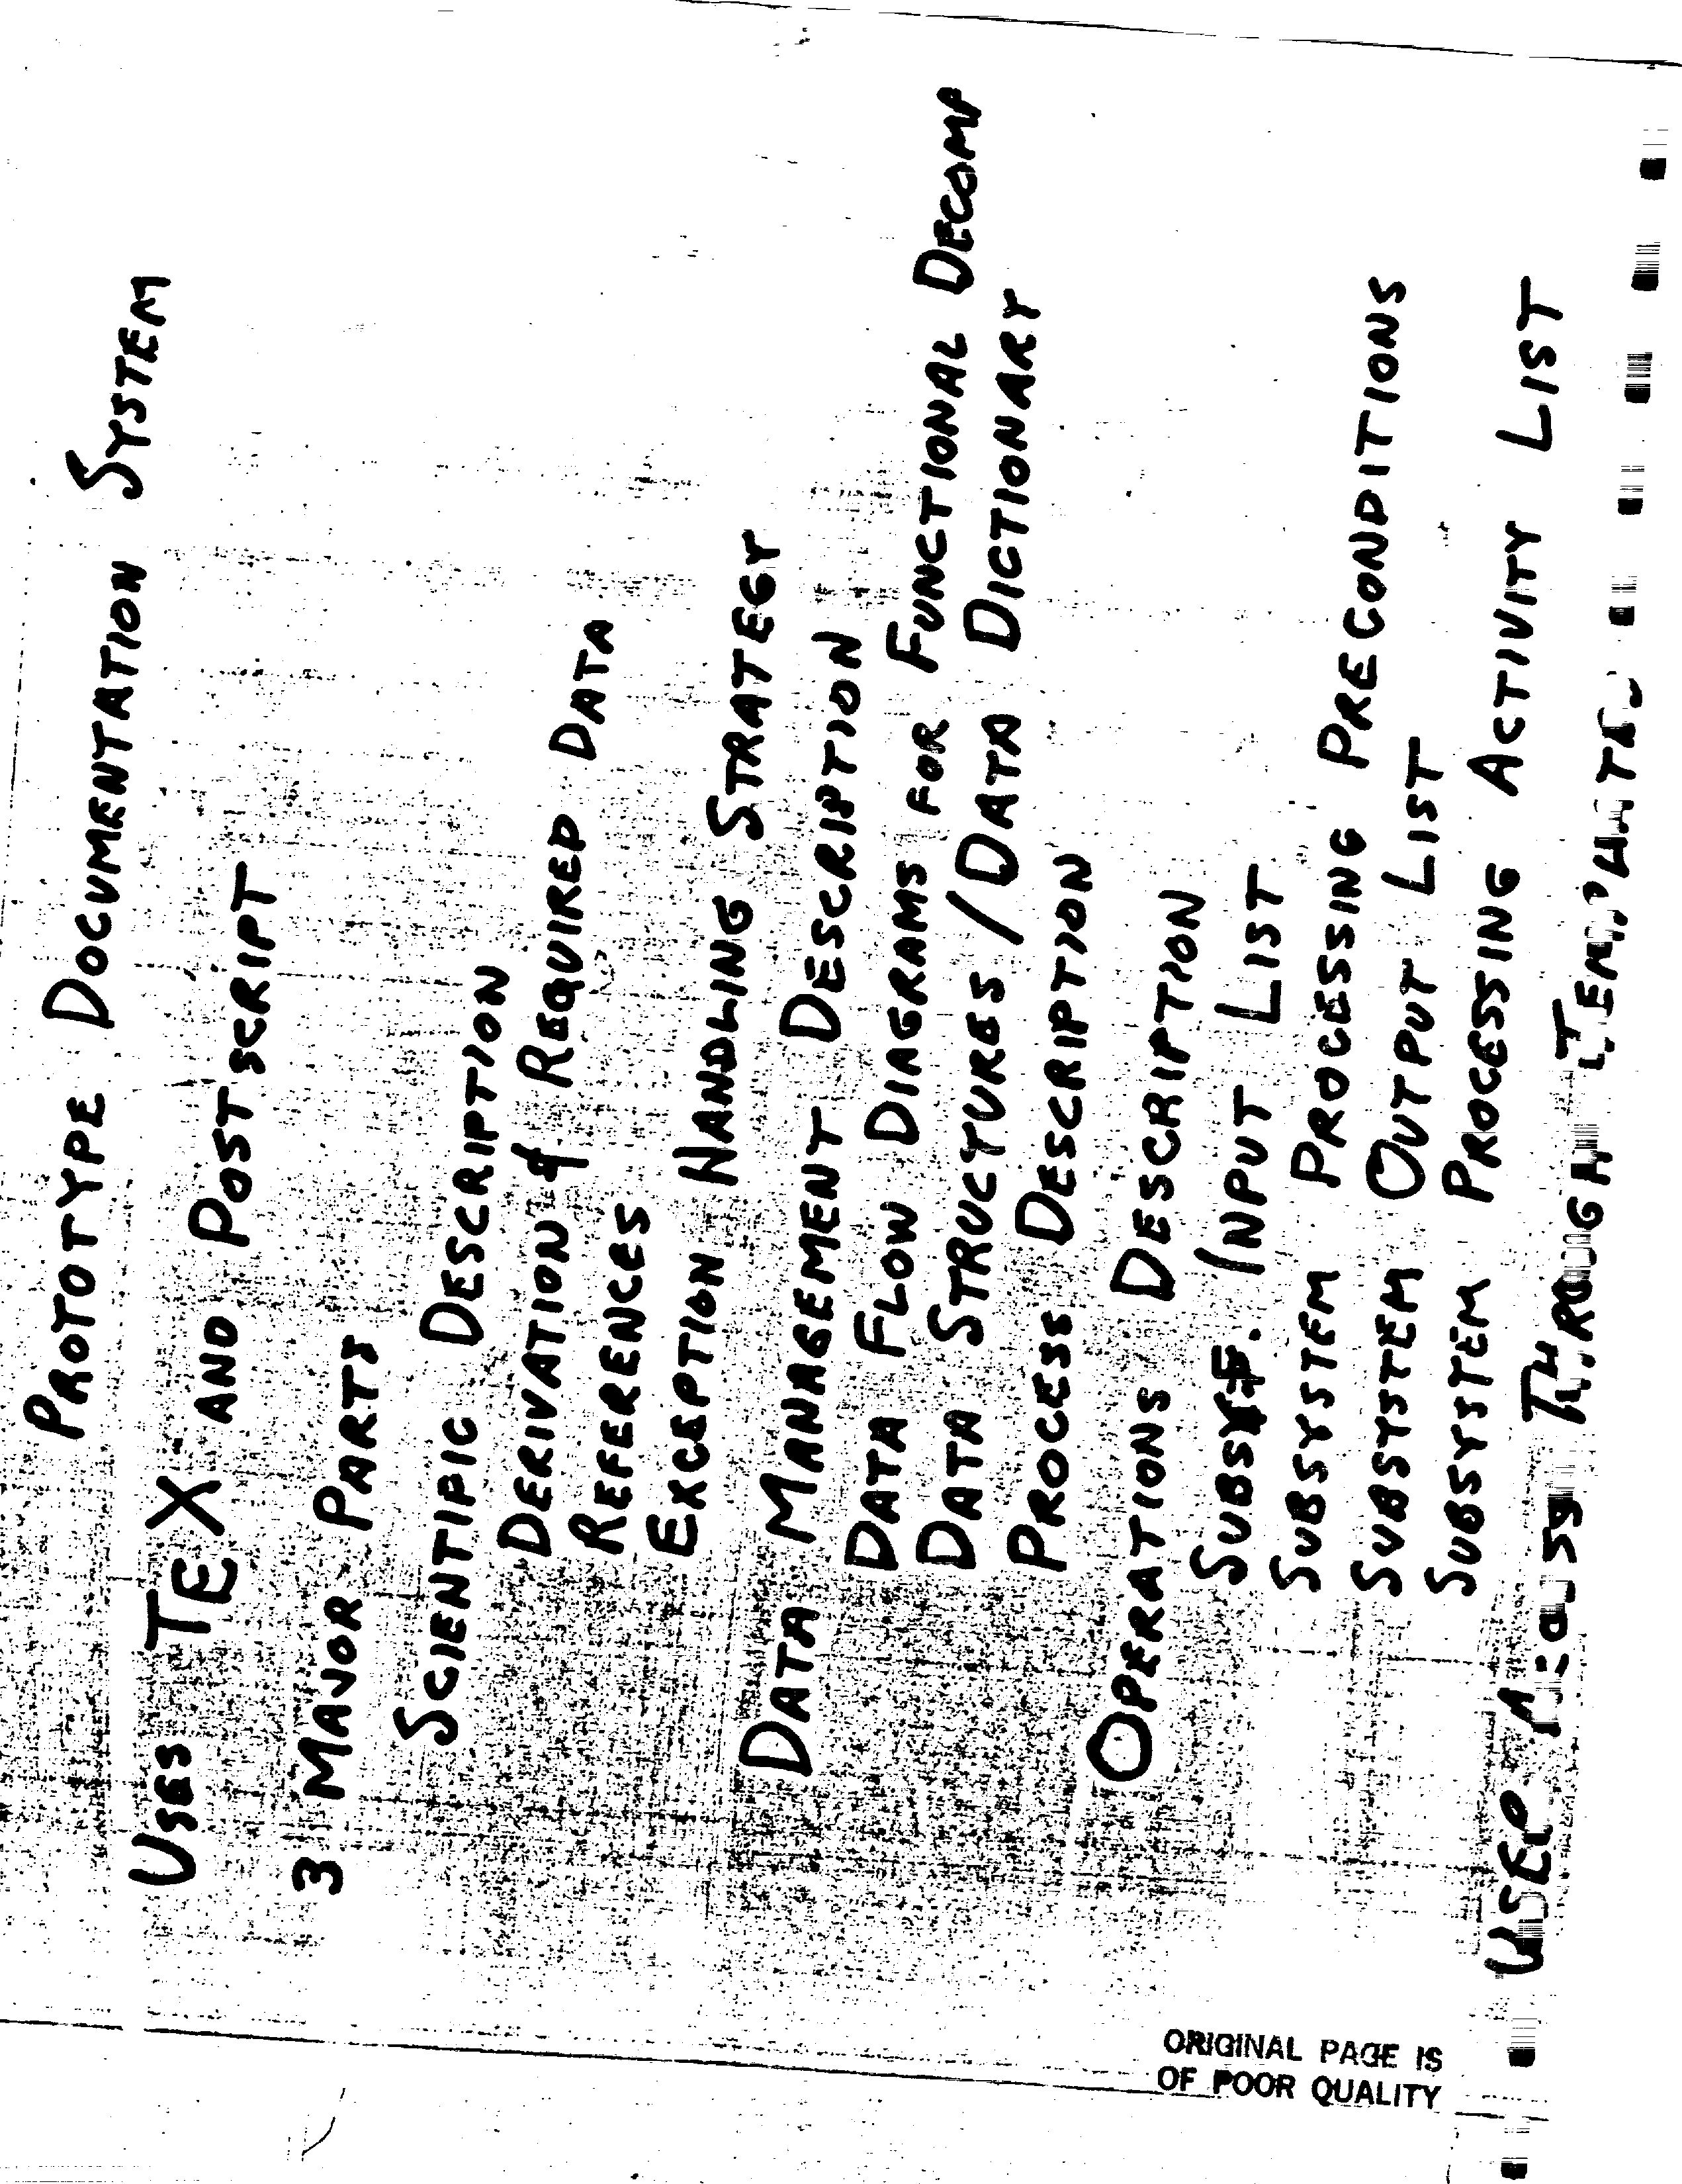 PROTOTYPE DOCUMENTATION SYSTEM
USES TEX AND POSTSCRIPT
3 MAJOR PARTS
SCIENTIFIC DESCRIPTION
DERIVATION & REQUIRED DATA
REFERENCES
EXCEPTION HANDLING STRATEGY
DATA MANAGEMENT DESCRIPTION
DATA FLOW DIAGRAMS FOR FUNCTIONAL DECOMP
DATA STRUCTURES / DATA DICTIONARY
PROCESS DESCRIPTION
OPERATIONS DESCRIPTION
SUBSYS. INPUT LIST
SUBSYSTEM PROCESSING PRECONDITIONS
SUBSYSTEM OUTPUT LIST
SUBSYSTEM PROCESSING ACTIVITY LIST
USER THROUGH TEMPLATES
ORIGINAL PAGE IS
OF POOR QUALITY